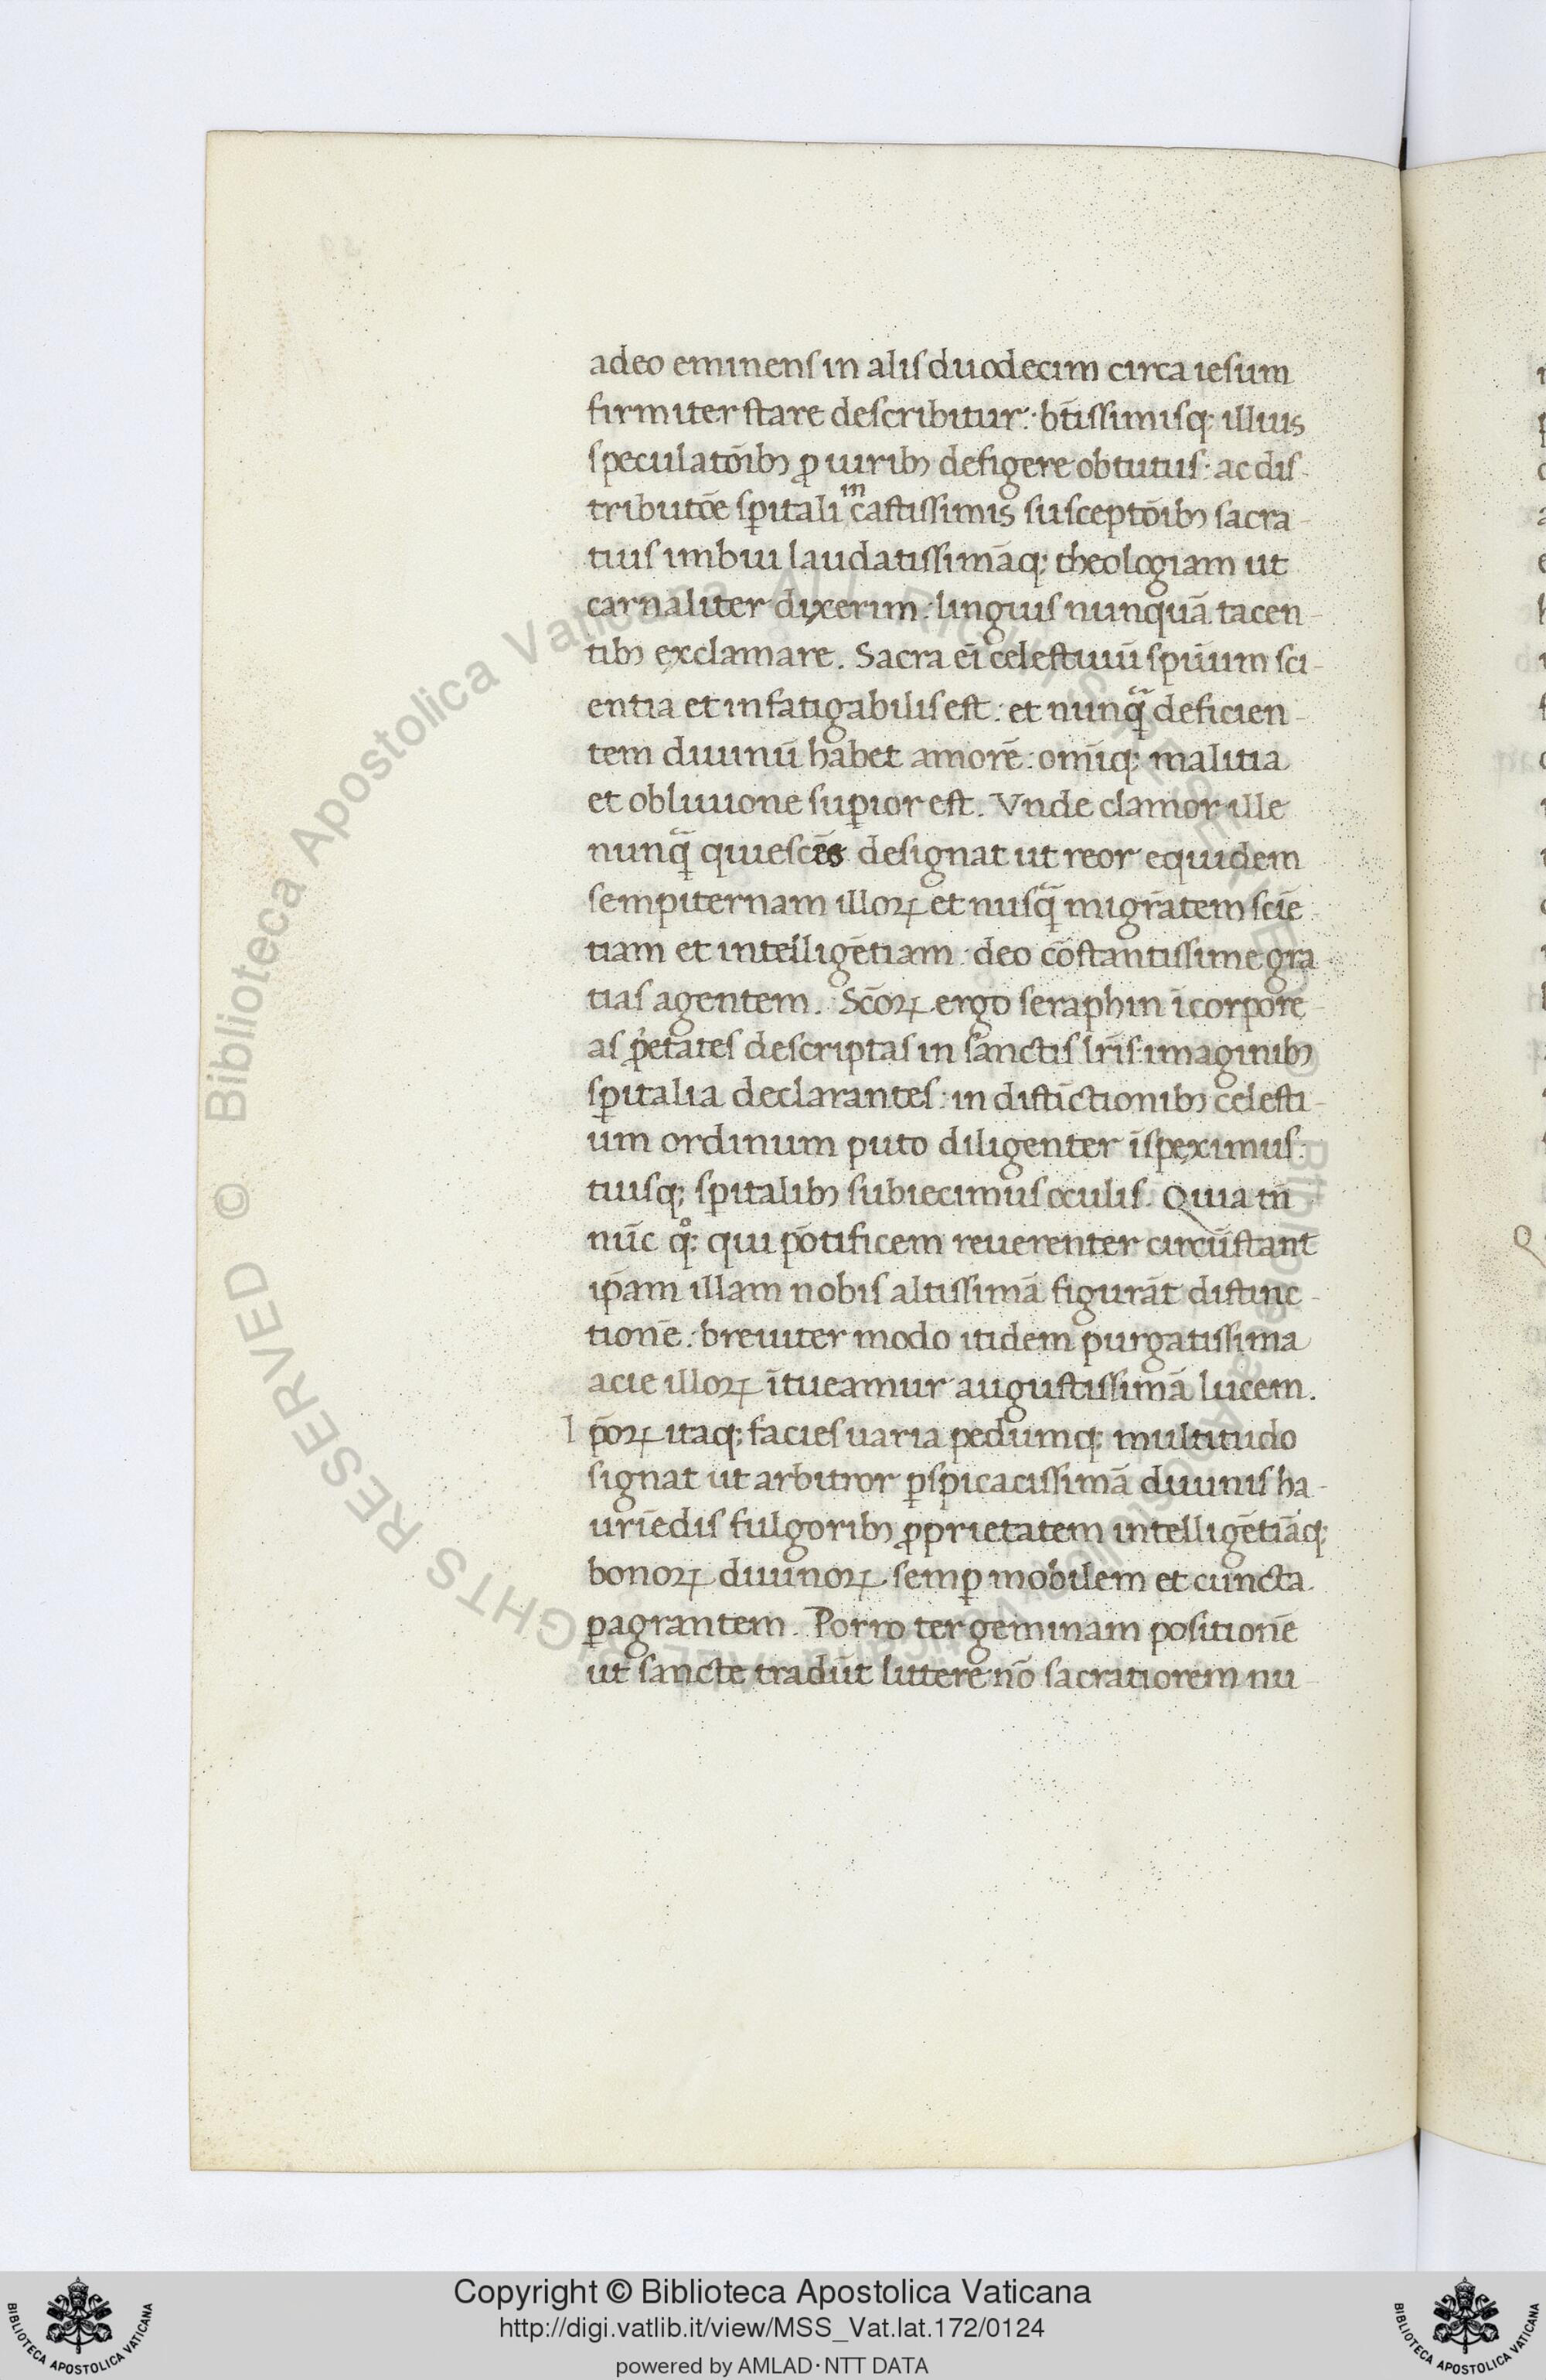 adeo eminens in alis duodecim circa iesum
firmiter stare describitur: bt̄issimisq; illius
speculatōibꝫ ꝓ uiribꝫ defigere obtutus· ac dis-
tributōe sp̄itali in castissimis susceptōibꝫ sacra-
tius imbui laudatissimāq; theologiam ut
carnaliter dixerim: linguis nunquā tacen-
tibꝫ exclamare. Sacra ei̅ celestiuū spūum sci-
entia et infatigabilis est: et nunq̄ deficien-
tem diuinū habet amorē: omīq; malitia
et obliuione suꝑior est. Vnde clamor ille
nunq̄ quiescēs designat ut reor equidem
sempiternam illoꝝ et nusq̄ migrātem sciē-
tiam et intelligētiam: deo cōstantissime gra-
tias agentem. Sc̄oꝝ ergo seraphin īcorpore-
as ꝓ̇etates descriptas in sanctis lr̄is: imaginibꝫ
sp̄italia declarantes: in distīctionibꝫ celesti-
um ordinum puto diligenter īspeximus:
tuisq; spitalibꝫ subiecimus oculis. Quia tn̄
nūc qͦ; qui pōtificem reuerenter circūstant
ip̄am illam nobis altissimā figurāt distinc-
tionē: breuiter modo itidem purgatissima
acie illoꝝ ītueamur augustissimā lucem.
I p̄oꝝ itaq; facies uaria pedumq; multitudo
signat ut arbitror ꝑspicacissimā diuinis ha-
uriēdis fulgoribꝫ ꝓprietatem intelligētiāq;
bonoꝝ diuinoꝝ semꝑ mobilem et cuncta
ꝑagrantem. Porro ter geminam positionē
ut sancte tradūt littere nō sacratiorem nu-
Copyright © Biblioteca Apostolica Vaticana
http://digi.vatlib.it/view/MSS_Vat.lat.172/0124
powered by AMLAD·NTT DATA
BIBLIOTECA APOSTOLICA VATICANA
BIBLIOTECA APOSTOLICA VATICANA